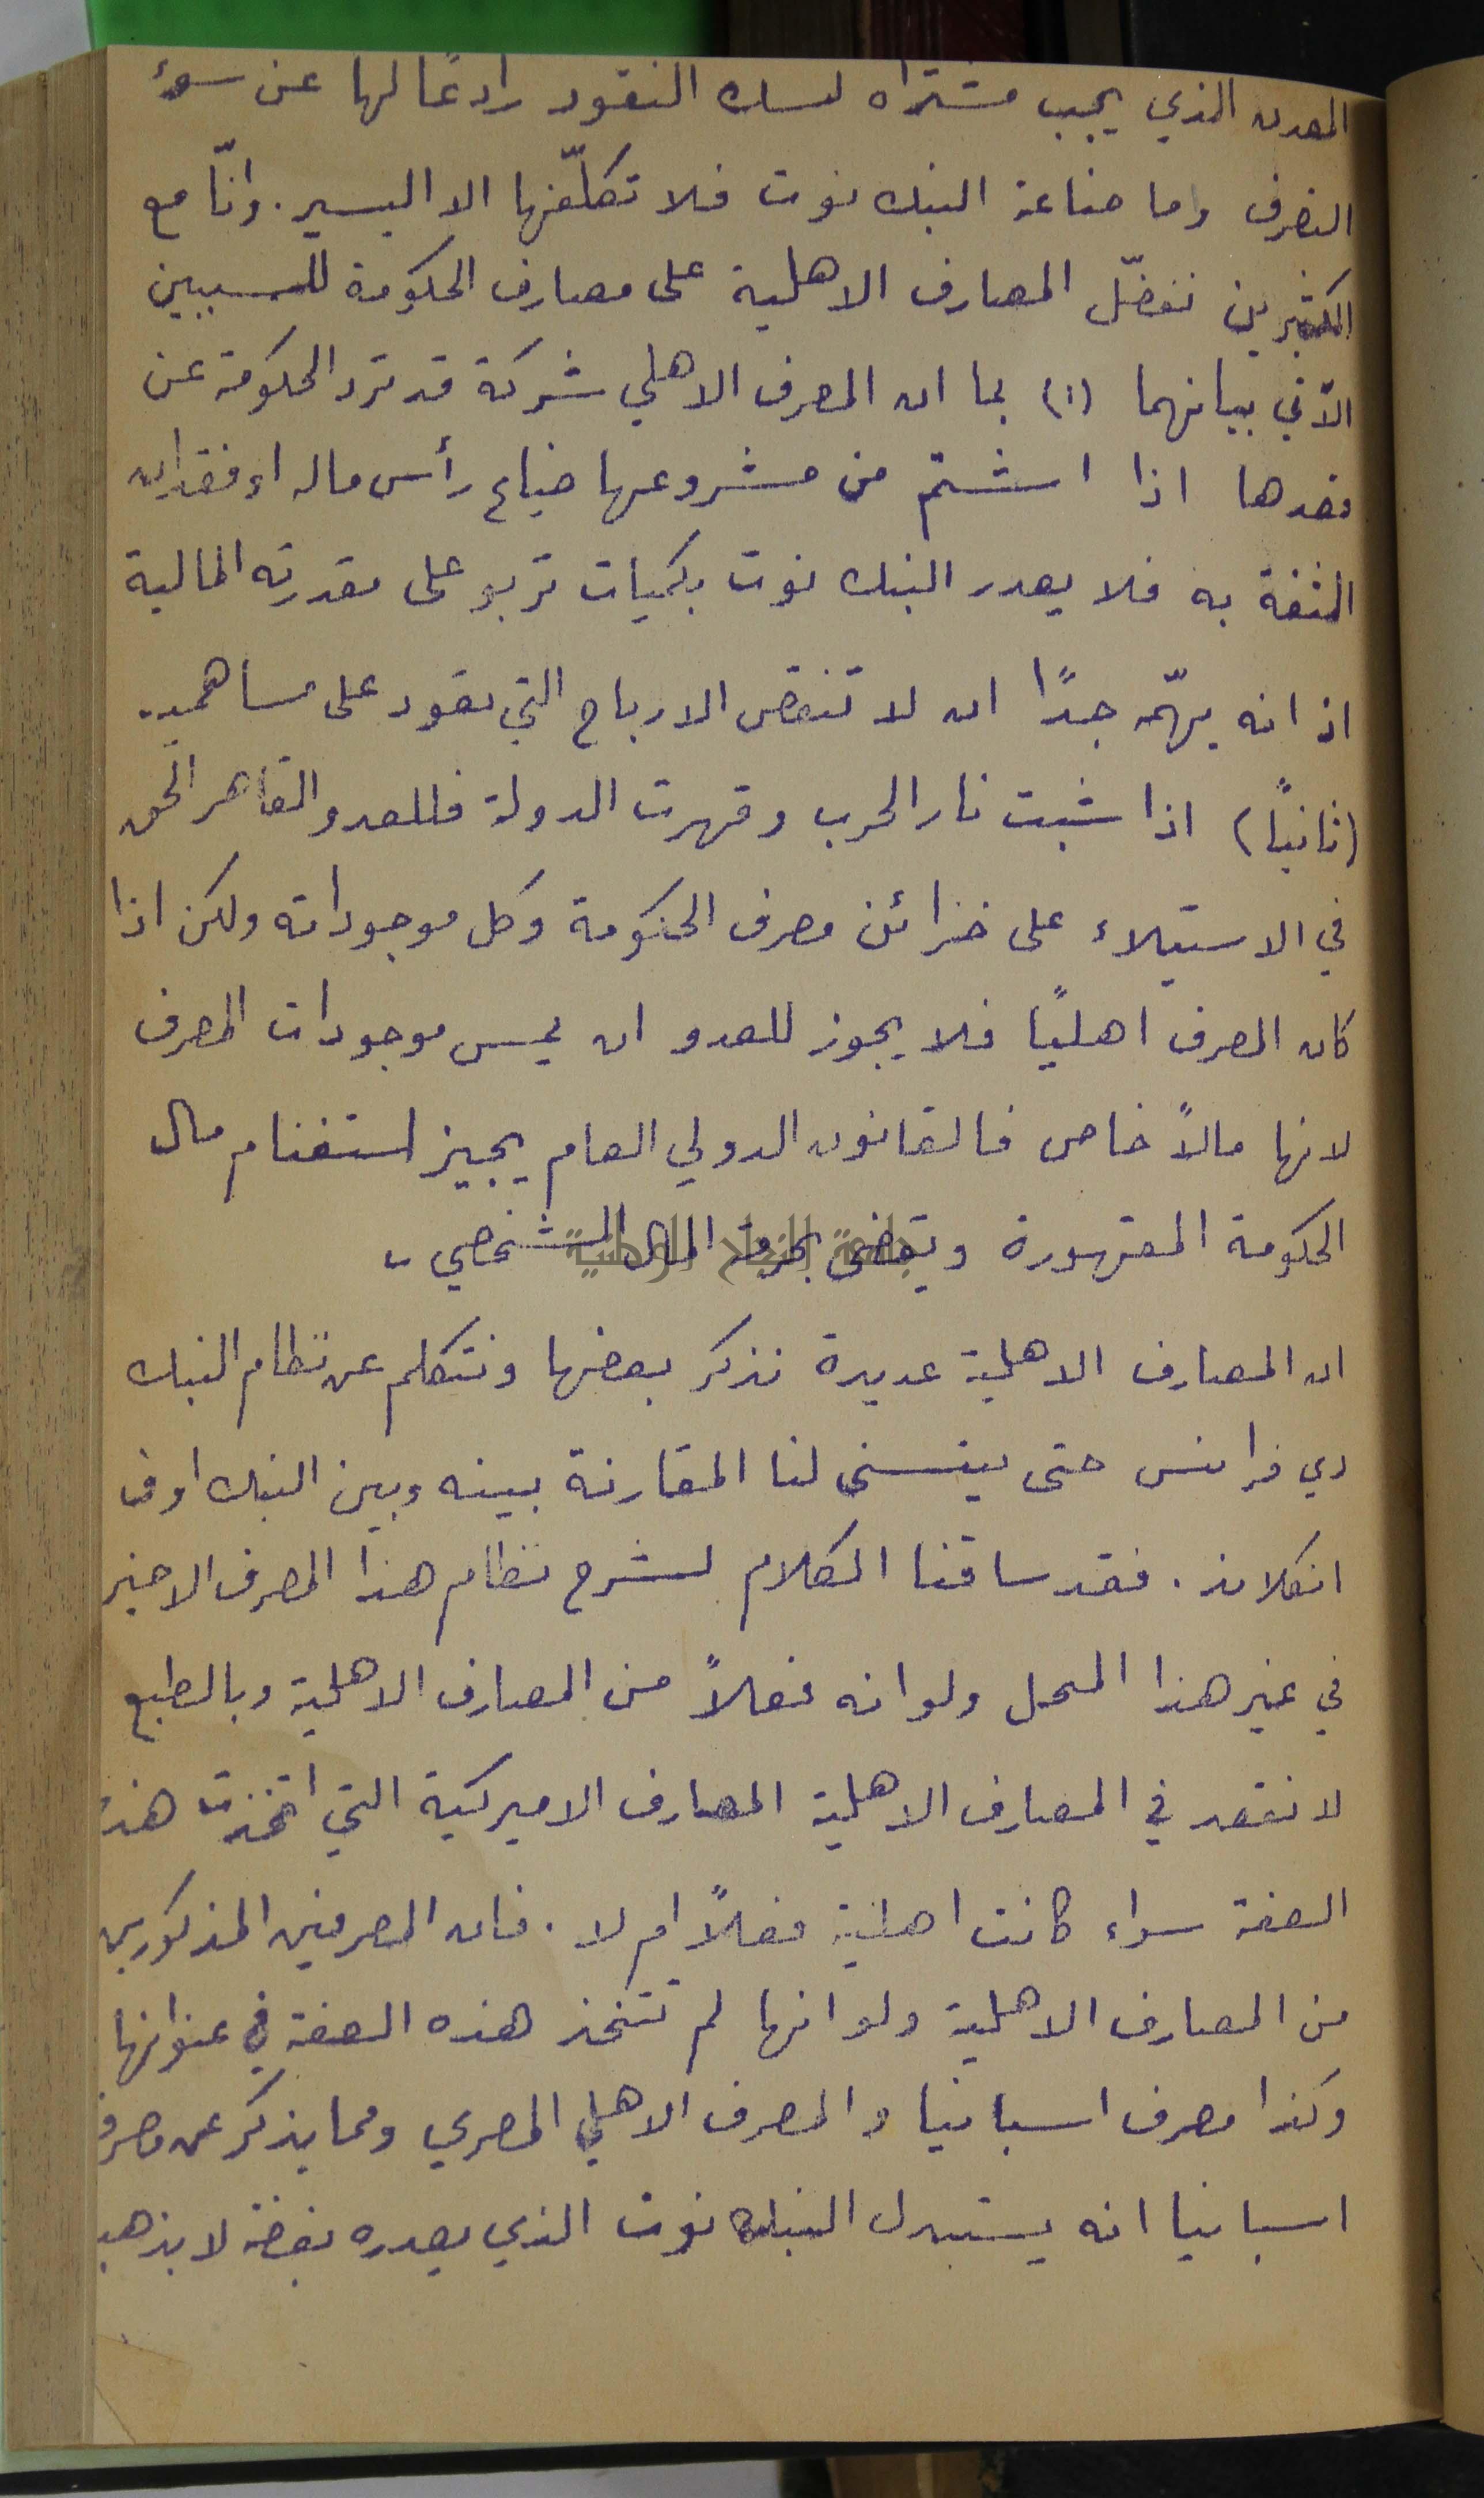 المعدن الذي يجب مشتراه لسك النقود رادعًا لها عن سوء
التصرف واما صناعة البنك نوت فلا تكلّفها الا اليسير. وانّا مع
الكثيرين نفضّل المصارف الاهلية على مصارف الحكومة للسببين
الآتي بيانهما (١) بما ان المصرف الاهلي شركة قد ترد الحكومة عن
قصدها اذا اشتم من مشروعها ضياع رأس ماله او فقدان
الثقة به فلا يصدر البنك نوت بكميات تربو على مقدرته المالية
اذ انه يهمّه جدًا ان لا تنقص الارباح التي تعود على مساهميه.
(ثانيًا) اذا شبت نار الحرب وقهرت الدولة فللعدو القاهر الحق
في الاستيلاء على خزائن مصرف الحكومة وكل موجوداته ولكن اذا
كان المصرف اهليًا فلا يجوز للعدو ان يمس موجودات المصرف
لانها مالاً خاص فالقانون الدولي العام يجيز استغنام مال
الحكومة المقهورة ويقضي بحرمة المال الشخصي
جامعة النجاح الوطنية
ان المصارف الاهلية عديدة نذكر بعضها ونتكلم عن نظام البنك
دي فرانس حتى يتسنى لنا المقارنة بينه وبين البنك اوف
انكلاند. فقد ساقنا الكلام لشرح نظام هذا المصرف الاخير
في غير هذا المحل ولو انه فعلاً من المصارف الاهلية وبالطبع
لا نقصد في المصارف الاهلية المصارف الاميركية التي اتخذت هذه
الصفة سواء كانت اهلية فعلاً ام لا. فان المصرفين المذكورين
من المصارف الاهلية ولو انها لم تتخذ هذه الصفة في عنوانها
وكذا مصرف اسبانيا والمصرف الاهلي المصري ومما يذكر عن مصرف
اسبانيا انه يستبدل البنك نوت الذي يصدره بفضة لا بذهب